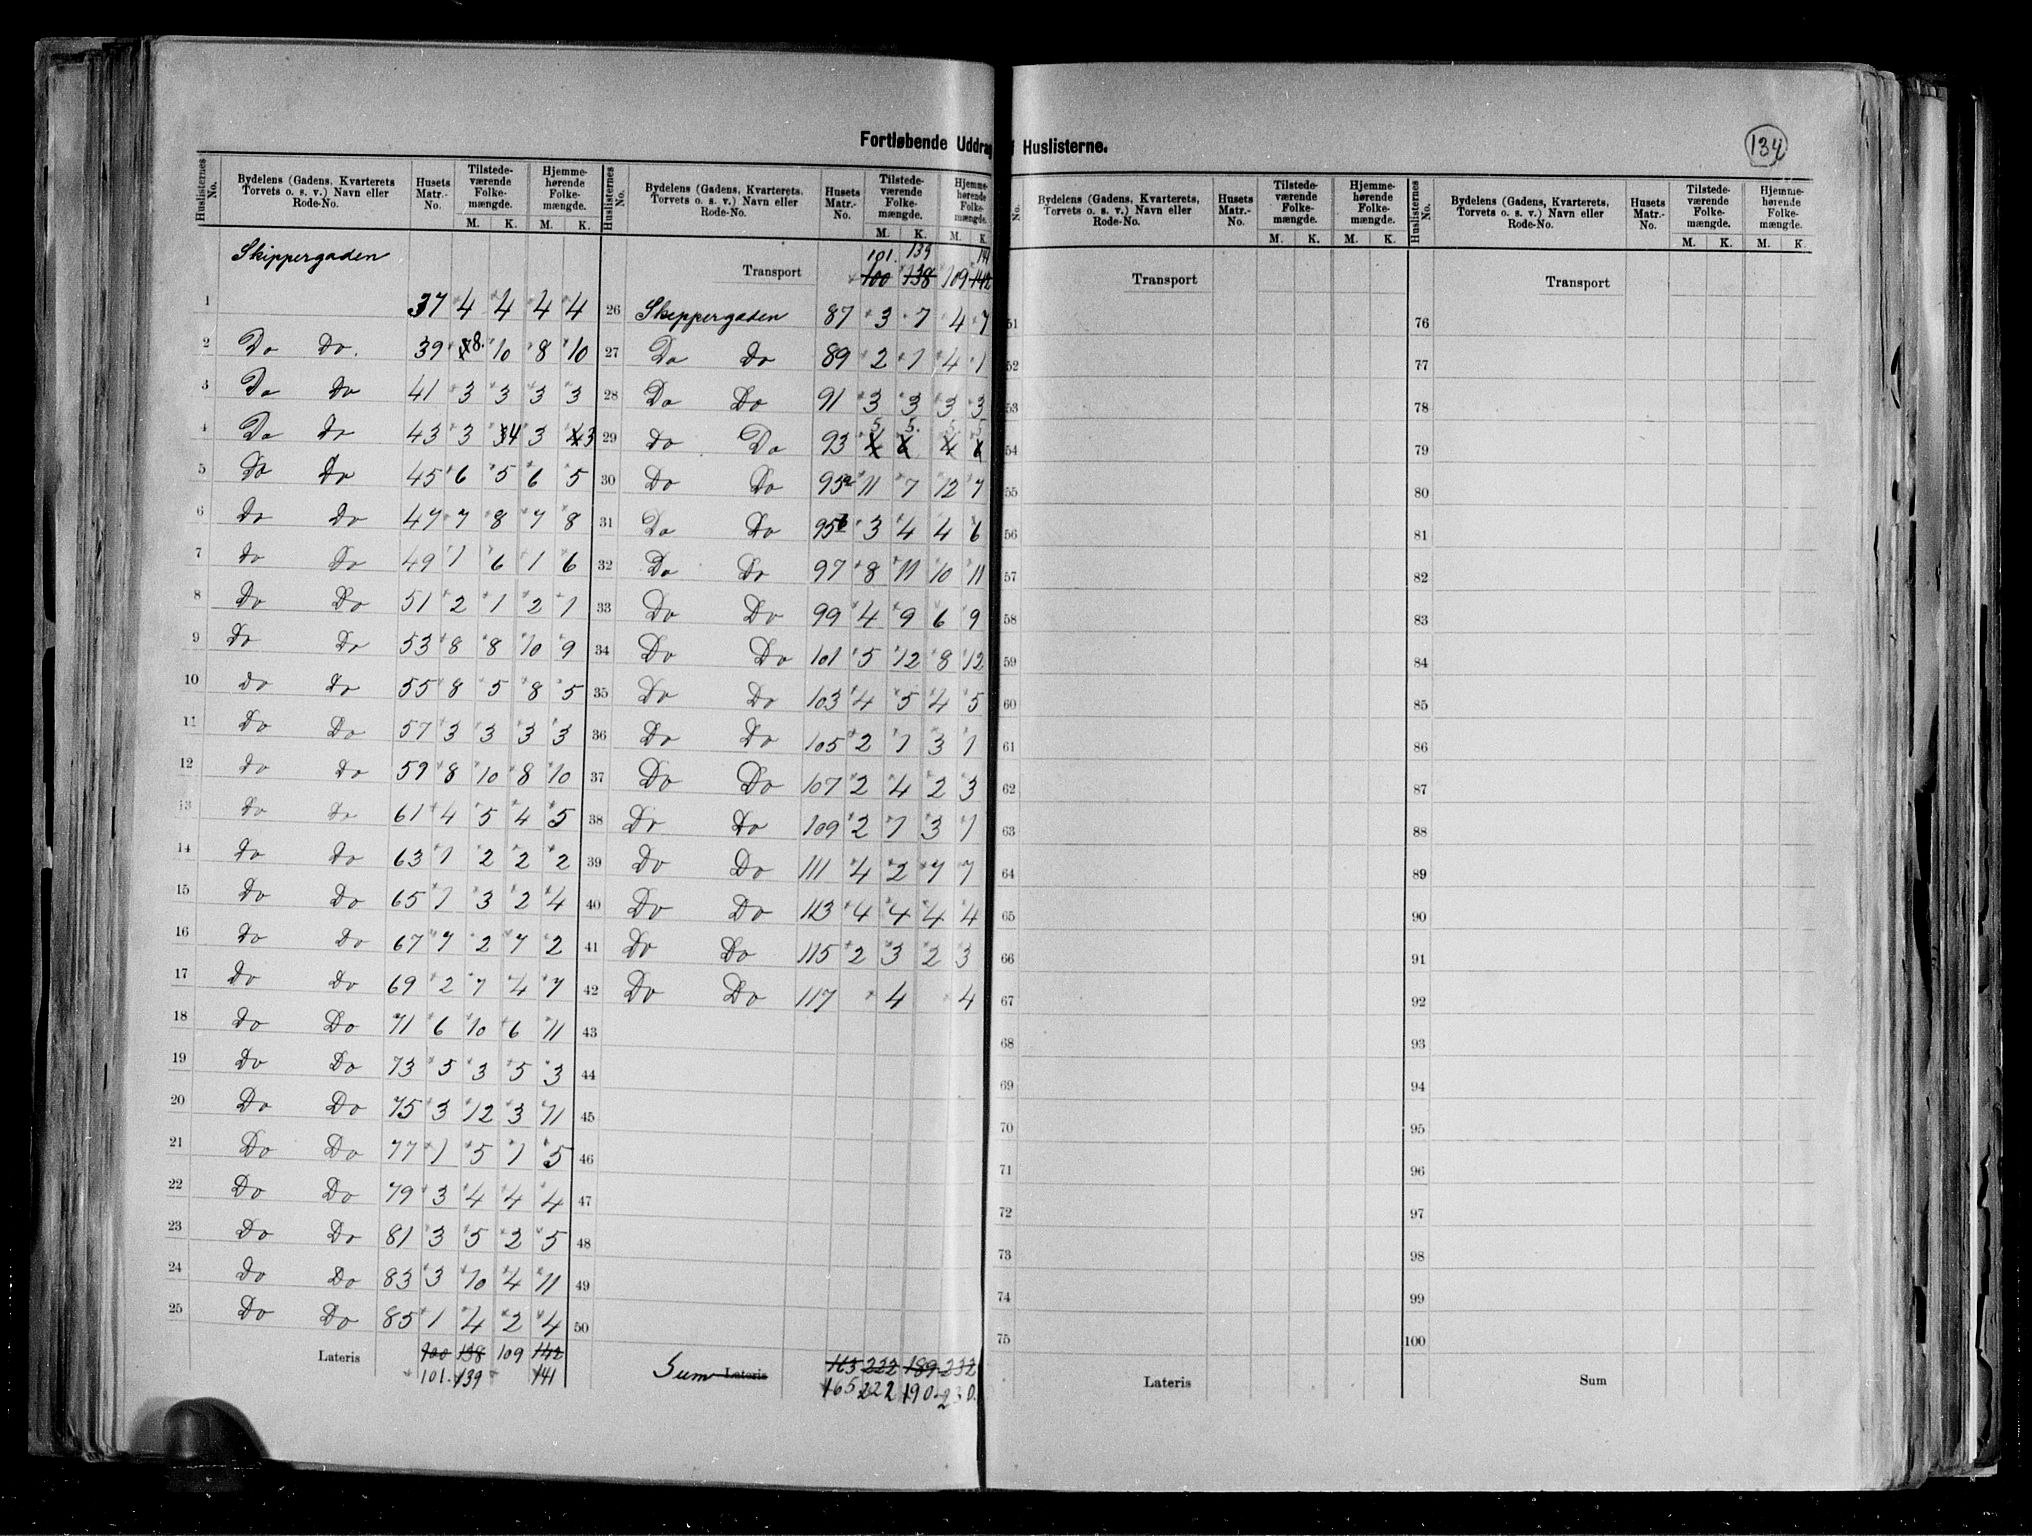 Fortløbende Uddrag f Huslisterne.
134
Huslisternes No. | Bydelens (Gadens, Kvarterets Torvets o. s. v.) Navn eller Rode-No. | Husets Matr.-No. | Tilstede-værende Folke-mængde. M. K. | Hjemme-hørende Folke-mængde. M. K.
Skippergaden
1 37 4 4 4 4
2 Do Do. 39 8 10 8 10
3 Do Do 41 3 3 3 3
4 Do Do 43 3 4 3 3
5 Do Do 45 6 5 6 5
6 Do Do 47 7 8 7 8
7 Do Do 49 1 6 1 6
8 Do Do 51 2 1 2 1
9 Do Do 53 8 8 10 9
10 Do Do 55 8 5 8 5
11 Do Do 57 3 3 3 3
12 Do Do 59 8 10 8 10
13 Do Do 61 4 5 4 5
14 Do Do 63 1 2 2 2
15 Do Do 65 1 3 2 4
16 Do Do 67 7 2 7 2
17 Do Do 69 2 7 4 7
18 Do Do 71 6 10 6 11
19 Do Do 73 5 3 5 3
20 Do Do 75 3 12 3 11
21 Do Do 77 1 5 1 5
22 Do Do 79 3 4 4 4
23 Do Do 81 3 5 2 5
24 Do Do 83 3 10 4 11
25 Do Do 85 1 4 2 4
Lateris 100 138 109 142
101. 139 141
Huslisternes No. | Bydelens (Gadens, Kvarterets, Torvets o. s. v.) Navn eller Rode-No. | Husets Matr.-No. | Tilstede-værende Folke-mængde. M. K. | Hjemme-hørende Folke-mængde. M. K.
101. 139
Transport 100 138 109 142
26 Skippergaden 87 3 7 4 7
27 Do Do 89 2 1 4 1
28 Do Do 91 3 3 3 3
29 Do Do 93 5 5. 5 5
30 Do Do 95a 11 7 12 7
31 Do Do 95b 3 4 4 6
32 Do Do 97 8 11 10 11
33 Do Do 99 4 9 6 9
34 Do Do 101 5 12 8 12
35 Do Do 103 4 5 4 5
36 Do Do 105 2 1 3 1
37 Do Do 107 2 4 2 3
38 Do Do 109 2 1 3 1
39 Do Do 111 4 2 7 7
40 Do Do 113 4 4 4 4
41 Do Do 115 2 3 2 3
42 Do Do 117 4 4
43
44
45
46
47
48
49
50
Sum Lateris 163 222 189 232
165 222 190 230.
No. | Bydelens (Gadens, Kvarterets, Torvets o. s. v.) Navn eller Rode-No. | Husets Matr.-No. | Tilstede-værende Folke-mængde. M. K. | Hjemme-hørende Folke-mængde. M. K.
Transport
51
52
53
54
55
56
57
58
59
60
61
62
63
64
65
66
67
68
69
70
71
72
73
74
75
Lateris
Huslisternes No. | Bydelens (Gadens, Kvarterets, Torvets o. s. v.) Navn eller Rode-No. | Husets Matr.-No. | Tilstede-værende Folke-mængde. M. K. | Hjemme-hørende Folke-mængde. M. K.
Transport
76
77
78
79
80
81
82
83
84
85
86
87
88
89
90
91
92
93
94
95
96
97
98
99
100
Sum